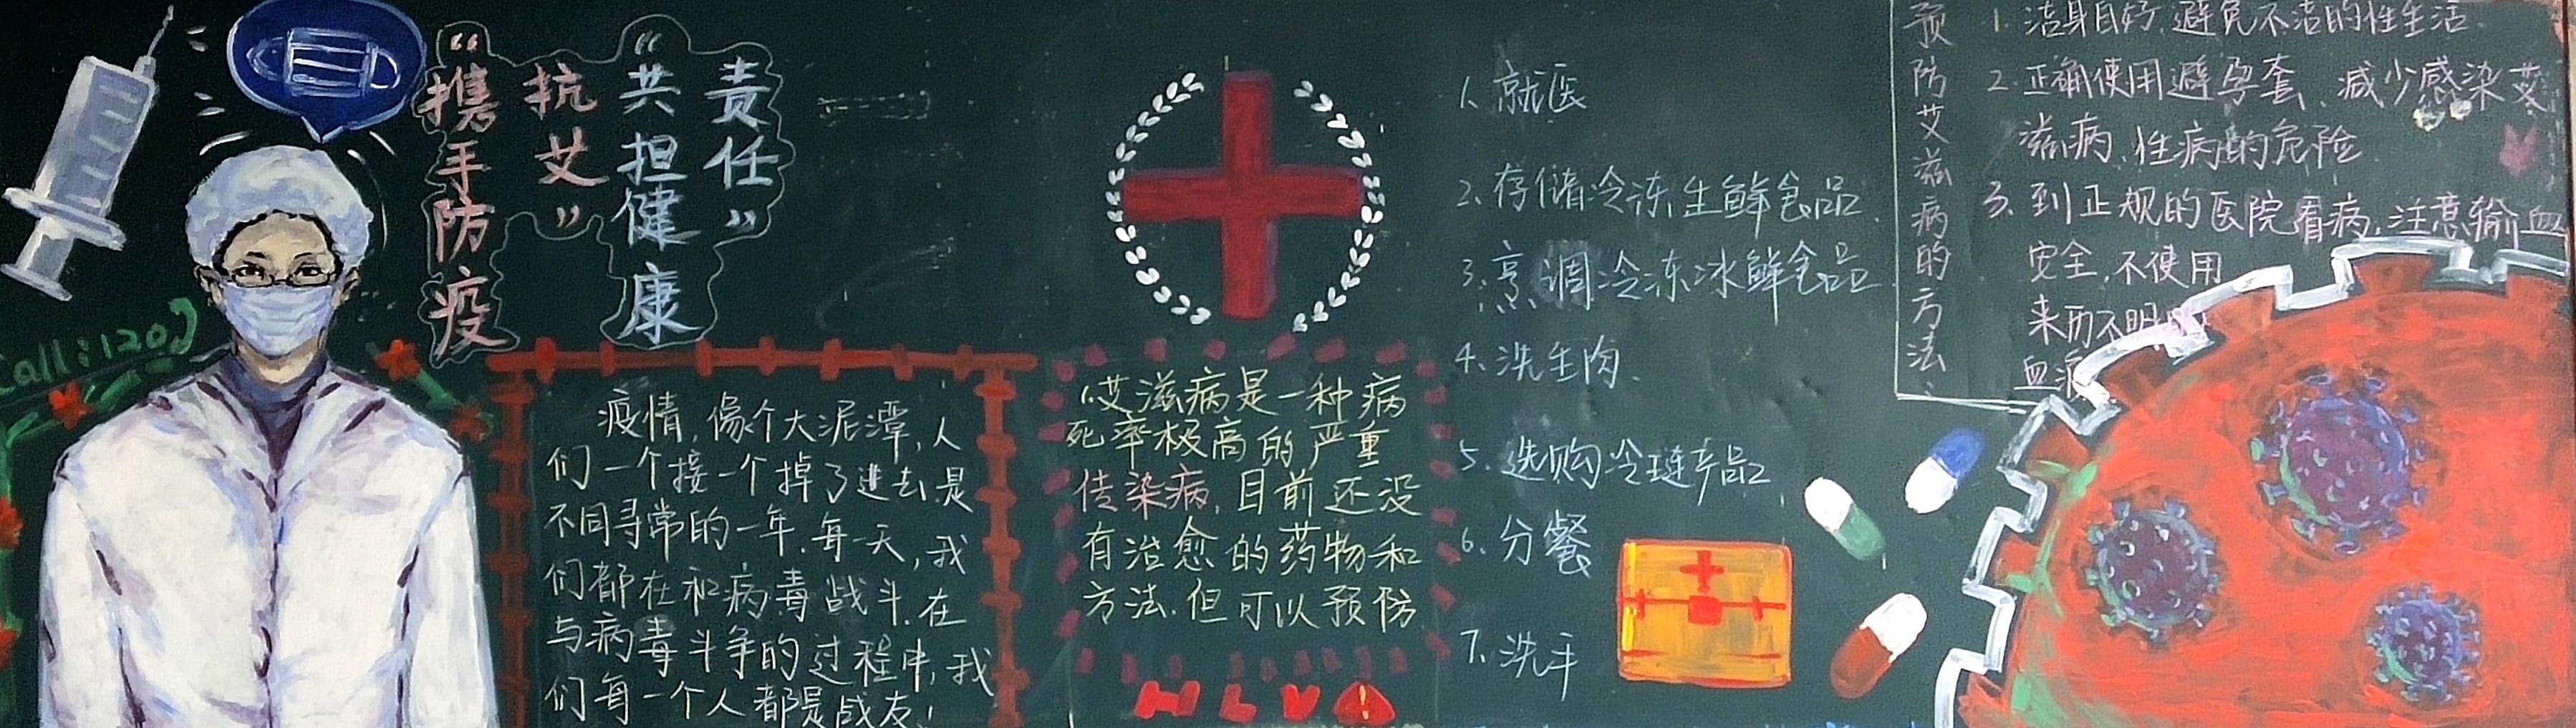 “携手防疫
抗艾”
“共担健康
责任”
Call:120
疫情,像个大泥潭,人
们一个接一个掉了进去,是
不同寻常的一年.每一天,我
们都在和病毒战斗.在
与病毒斗争的过程中,我
们每一个人都是战友!
1.艾滋病是一种病
死率极高的严重
传染病,目前还没
有治愈的药物和
方法.但可以预防
1、就医
2.存储冷冻生鲜食品.
3.烹调冷冻冰鲜食品
4.洗生肉.
5.选购冷琏产品
6.分餐
7.洗手
预防艾滋病的方法:
1.洁身自好,避免不洁的性生活
2.正确使用避孕套、减少感染艾
滋病、性病的危险
3.到正规的医院看病,注意输血
安全,不使用
来历不明的
血液